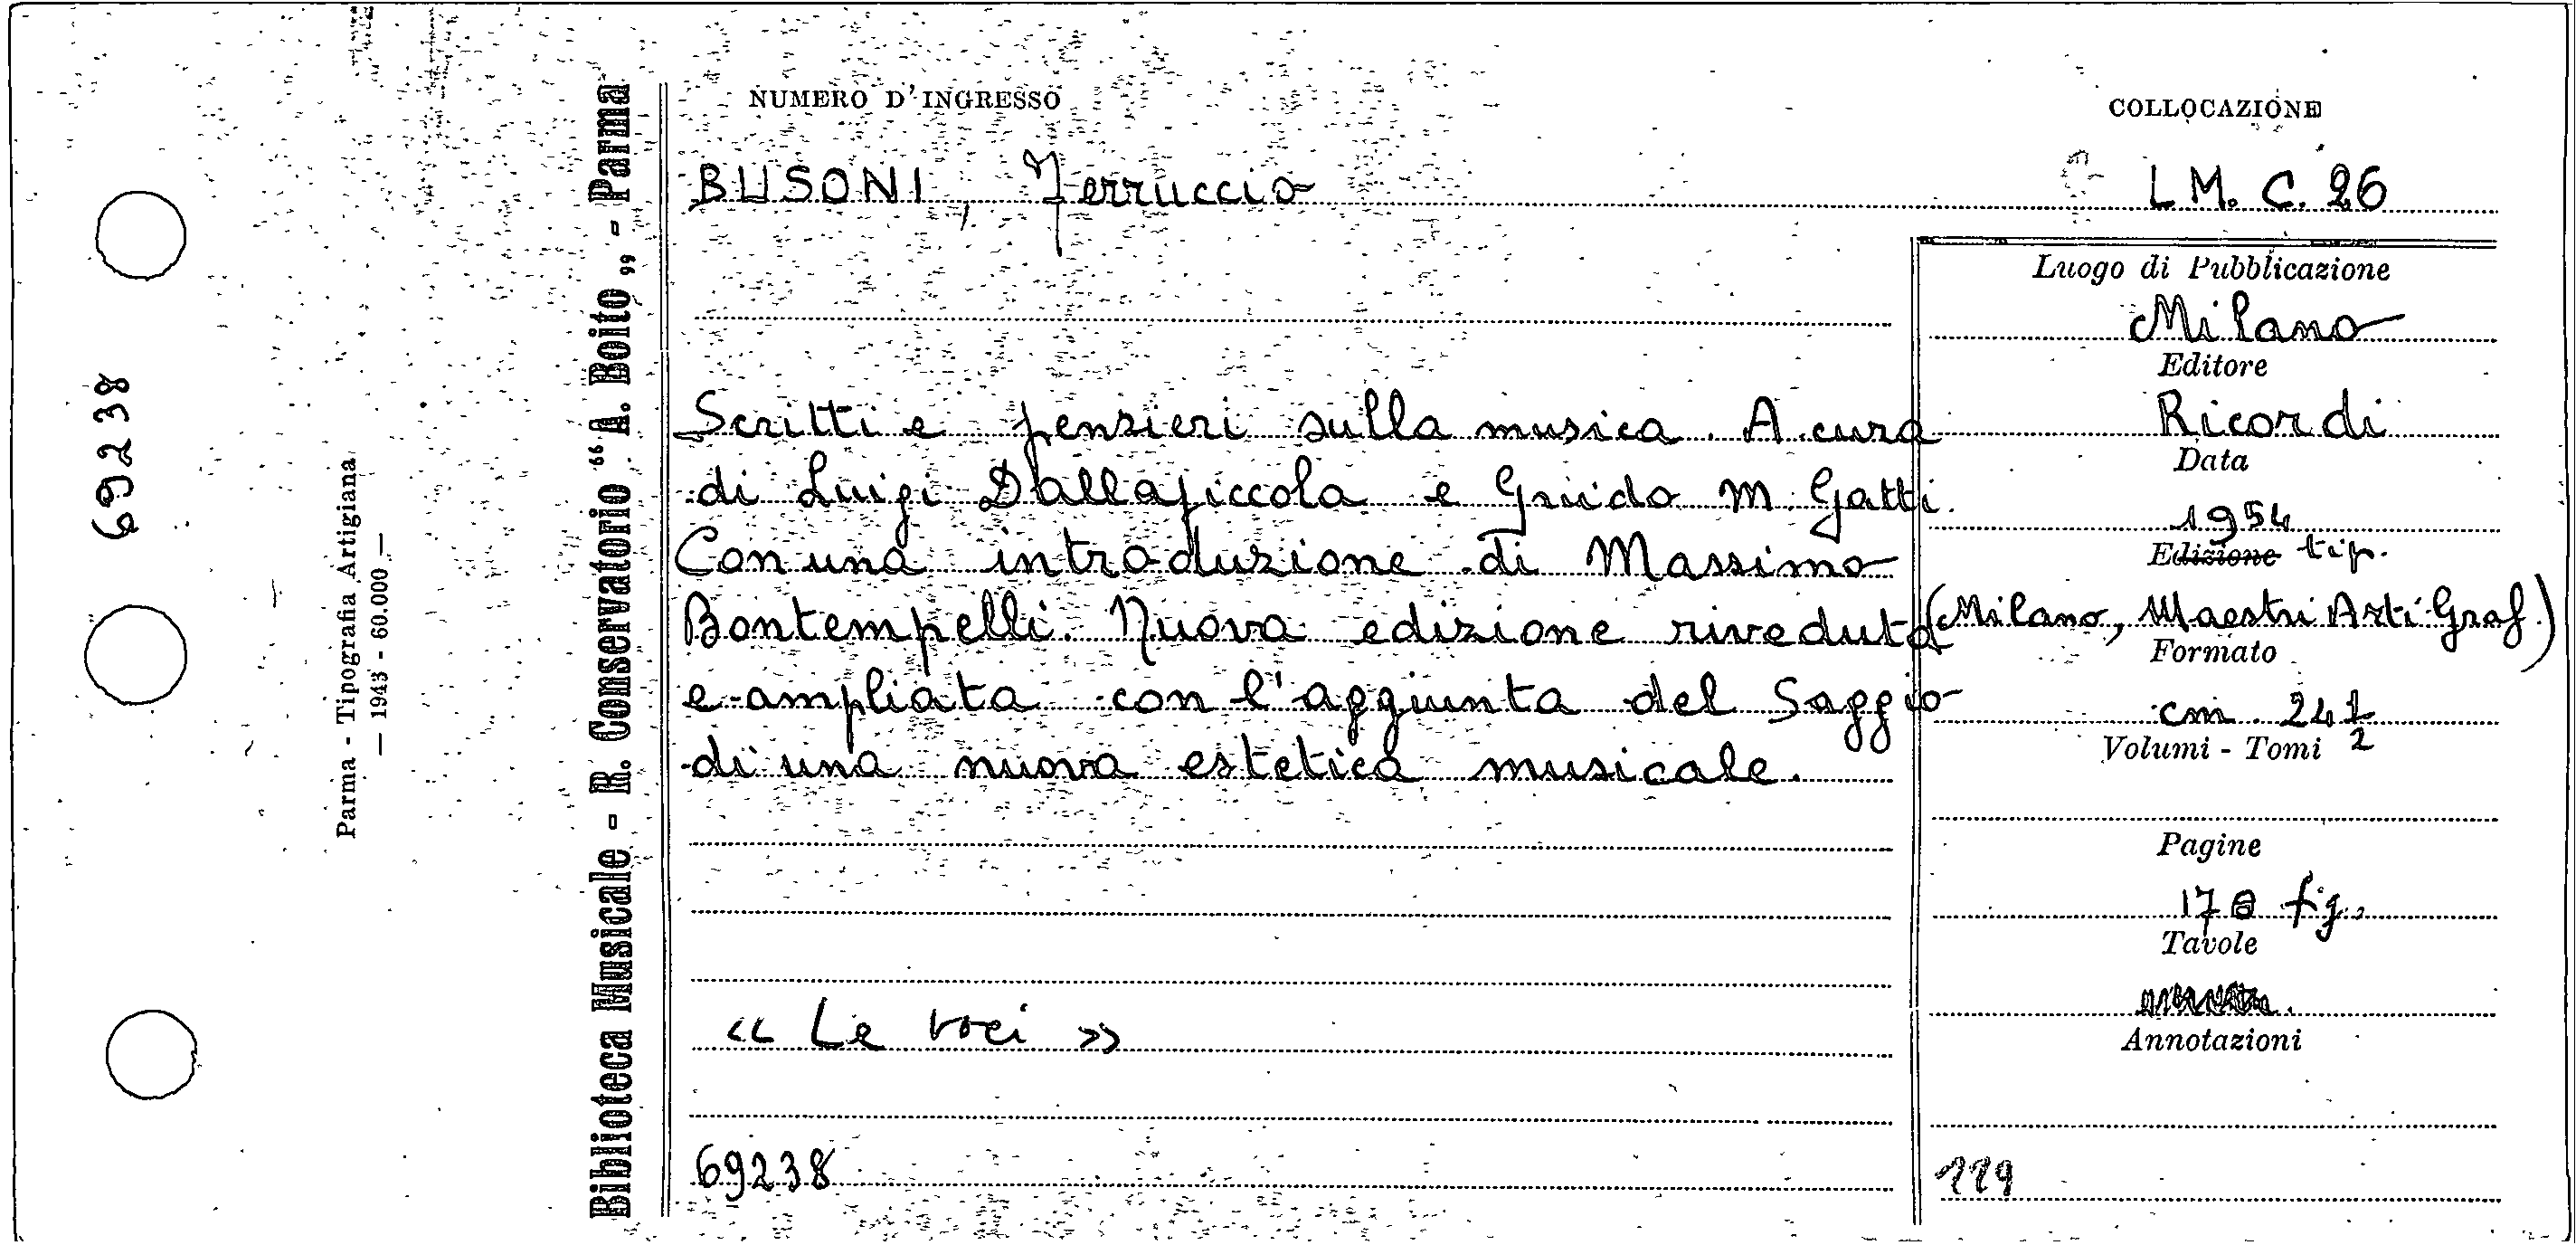 69238
Parma - Tipografia Artigiana
— 1943 - 60.000 —
Biblioteca Musicale - R. Conservatorio “A. Boito„ - Parma
NUMERO D'INGRESSO
COLLOCAZIONE
BUSONI, Ferruccio
L M. C. 26
Scritti e pensieri sulla musica. A cura
di Luigi Dallapiccola e Guido M. Gatti.
Con una introduzione di Massimo
Bontempelli. Nuova edizione riveduta
e ampliata con l'aggiunta del Saggio
di una nuova estetica musicale.
« Le voci »
69238
Luogo di Pubblicazione
Milano
Editore
Ricordi
Data
1954
Edizione tip.
(Milano, Maestri Arti Graf.)
Formato
cm. 24 1/2
Volumi - Tomi
Pagine
fig.
Tavole
Annotazioni
119